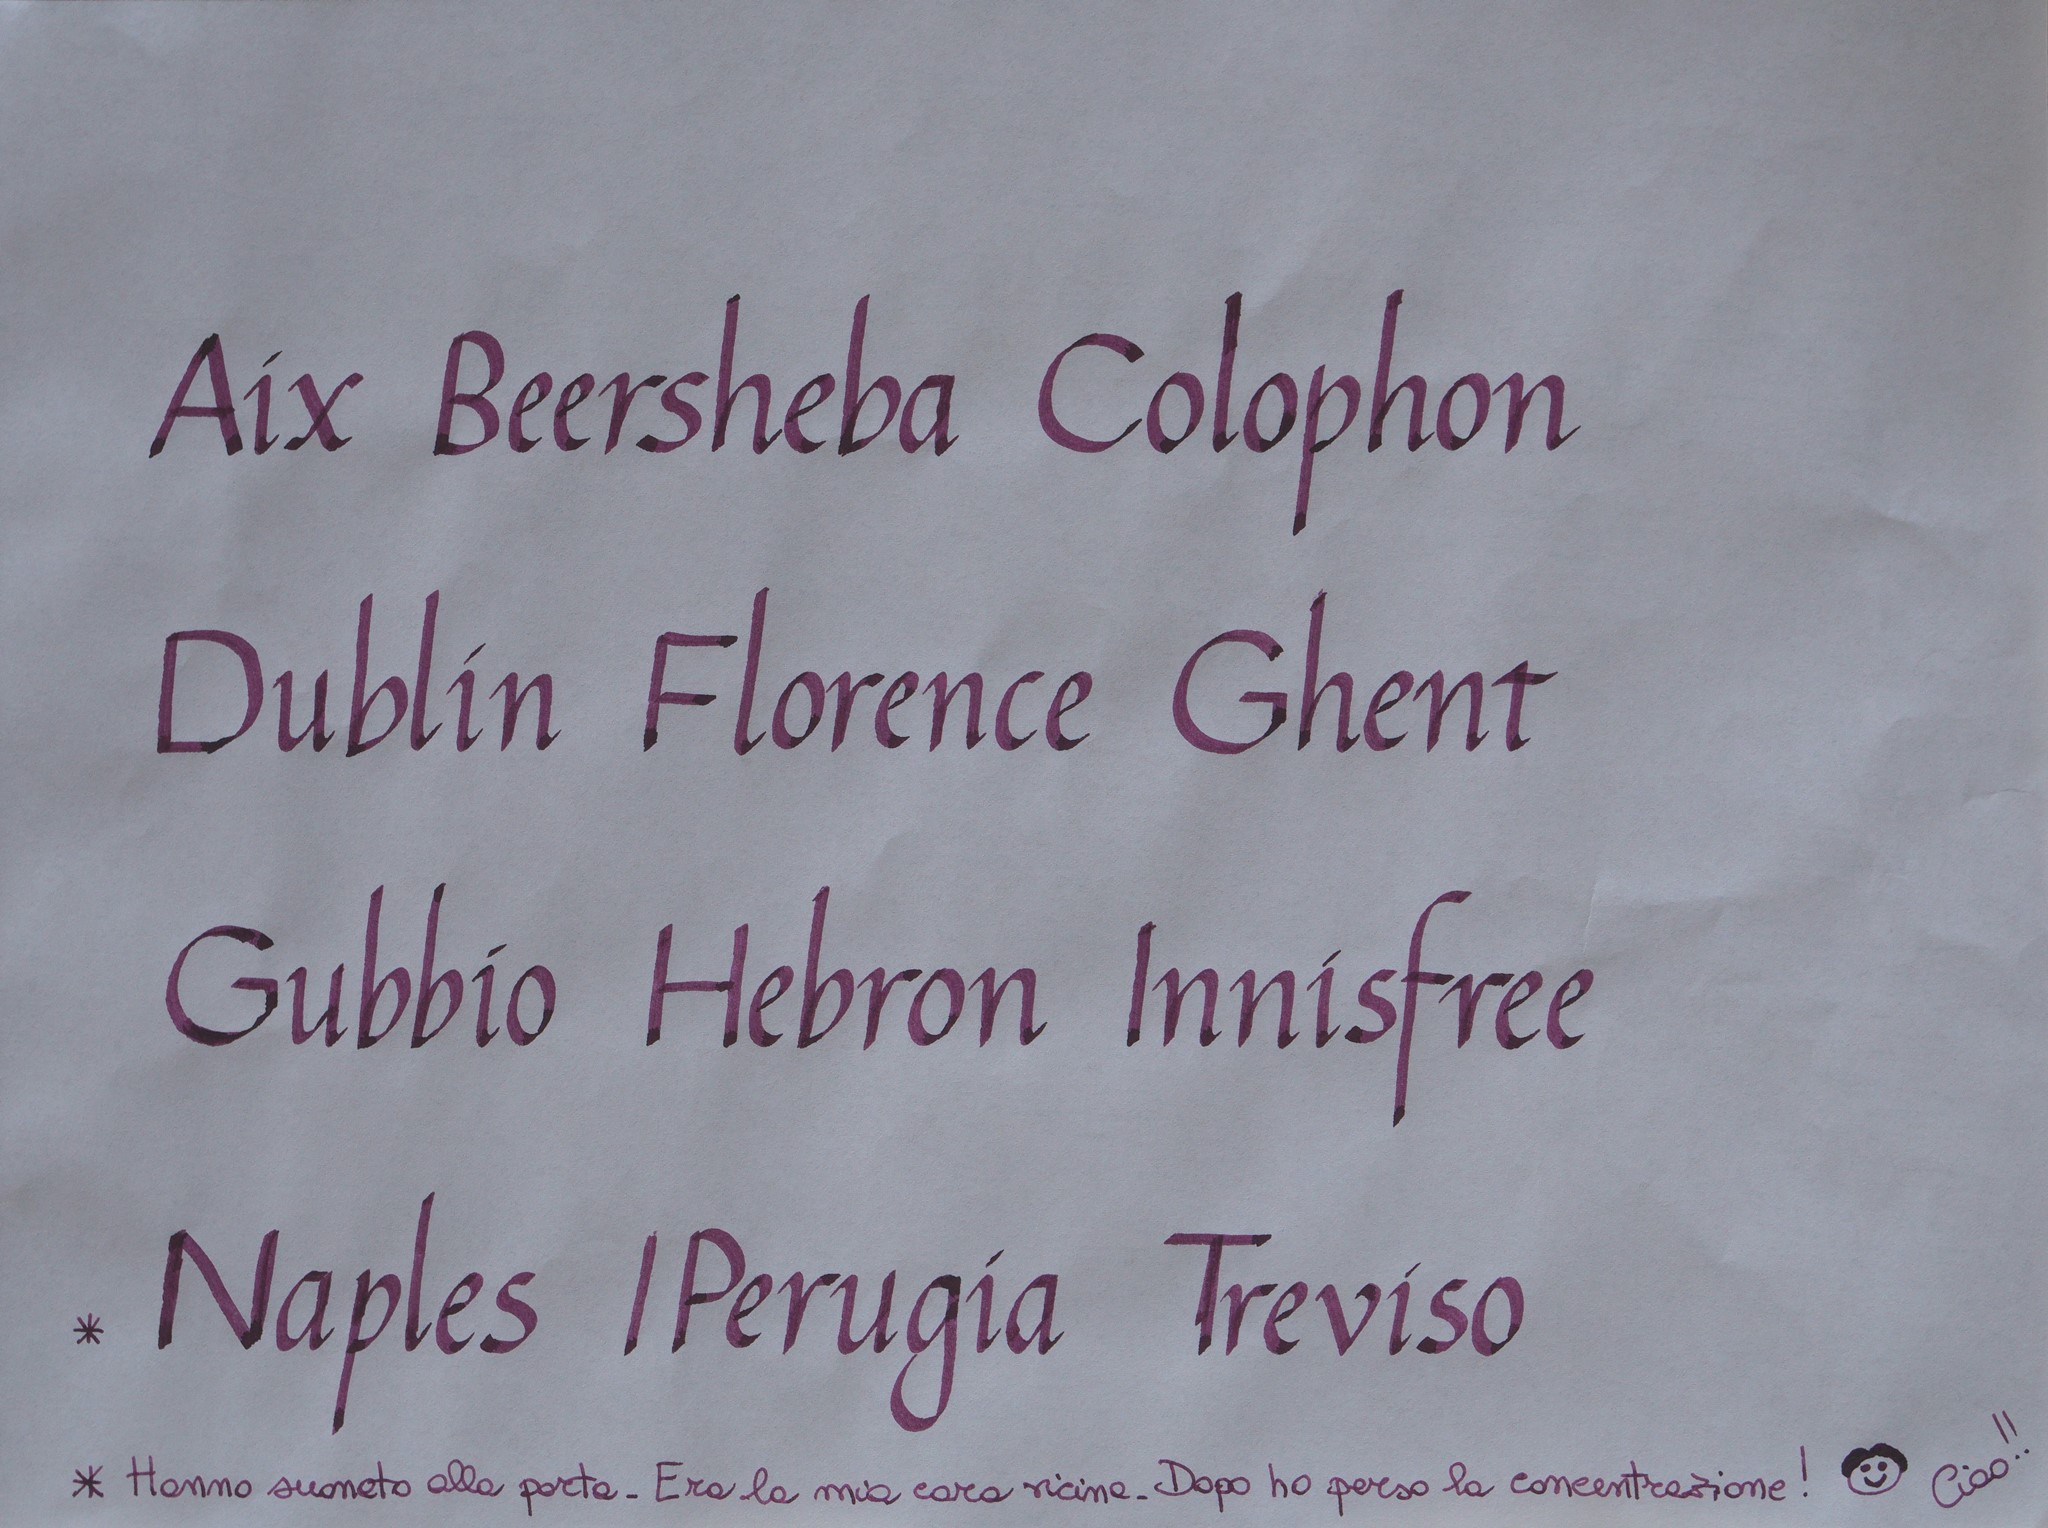 Aix Beersheba Colophon
Dublin Florence Ghent
Gubbio Hebron Innisfree
* Naples | Perugia Treviso
* Hanno suonato alla porta - Era la mia cara vicina - Dopo ho perso la concentrazione! Ciao!!